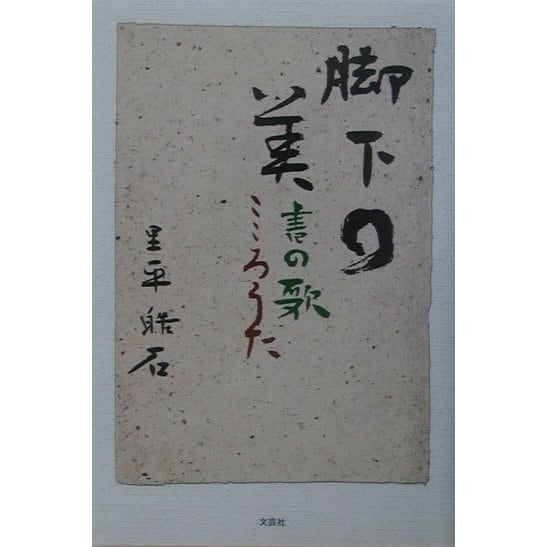 脚下の
美
書の歌
こころうた
里平皓石
文芸社